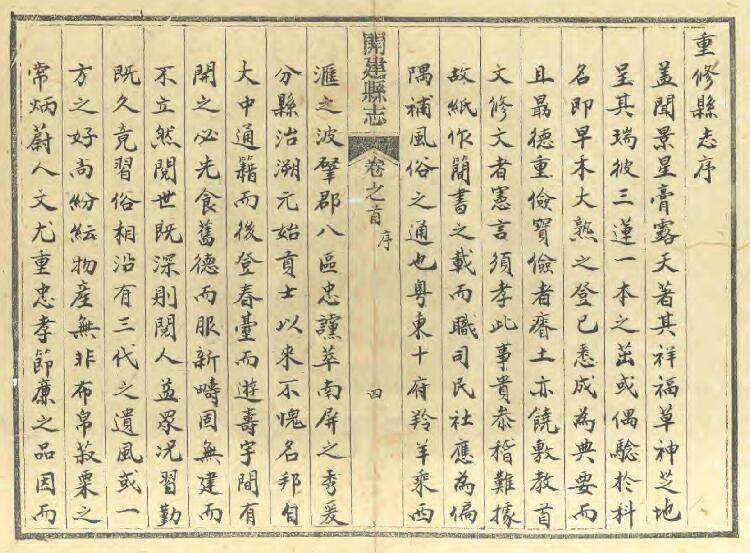 重修縣志序
蓋聞景星膏露天著其祥福草神芝地
呈其瑞彼三蓮一本之茁或偶驗於科
名即早禾大熟之登已悉成為典要而
且最德重儉寶儉者瘠土亦饒敷教首
文修文者憲言須孝此事貴恭稽難據
故紙作簡書之載而職司民社應為偏
隅補風俗之通也粵東十府羚羊乘西
開建縣志
卷之首
序
四
滙之波肇郡八區忠讜萃南屏之秀爰
分縣治溯元始貢士以來不愧名邦自
大中通籍而後登春臺而遊壽宇間有
開之必先食舊德而服新疇固無建而
不立然閱世既深則閱人益眾況習勤
既久竟習俗相沿有三代之遺風或一
方之好尚紛紜物產無非布帛菽粟之
常炳蔚人文尤重忠孝節廉之品因而